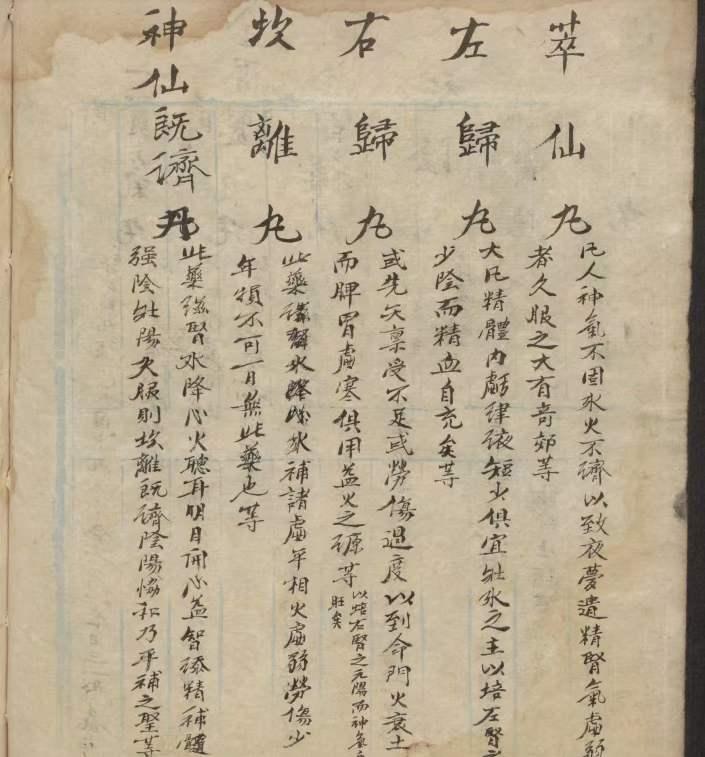 萃仙丸
凡人神氣不固水火不濟以致夜夢遺精腎氣虛弱
者久服之大有奇効等
左歸丸
大凡精體內虧津液短少俱宜壯水之主以培左腎之
少陰而精血自充矣等
右歸丸
或先天稟受不足或勞傷過度以到命門火衰土
而脾胃虛寒俱用益火之源等
以培右腎之元陽而神氣自
旺矣
坎離丸
此藥滋腎水降心火補諸虛年相火虛弱勞傷少
年損不可一日無此藥也等
神仙既濟丹
此藥滋腎水降心火聰耳明目開心益智添精補髓
强陰壯陽久服則坎離既濟陰陽恊和乃平補之聖等